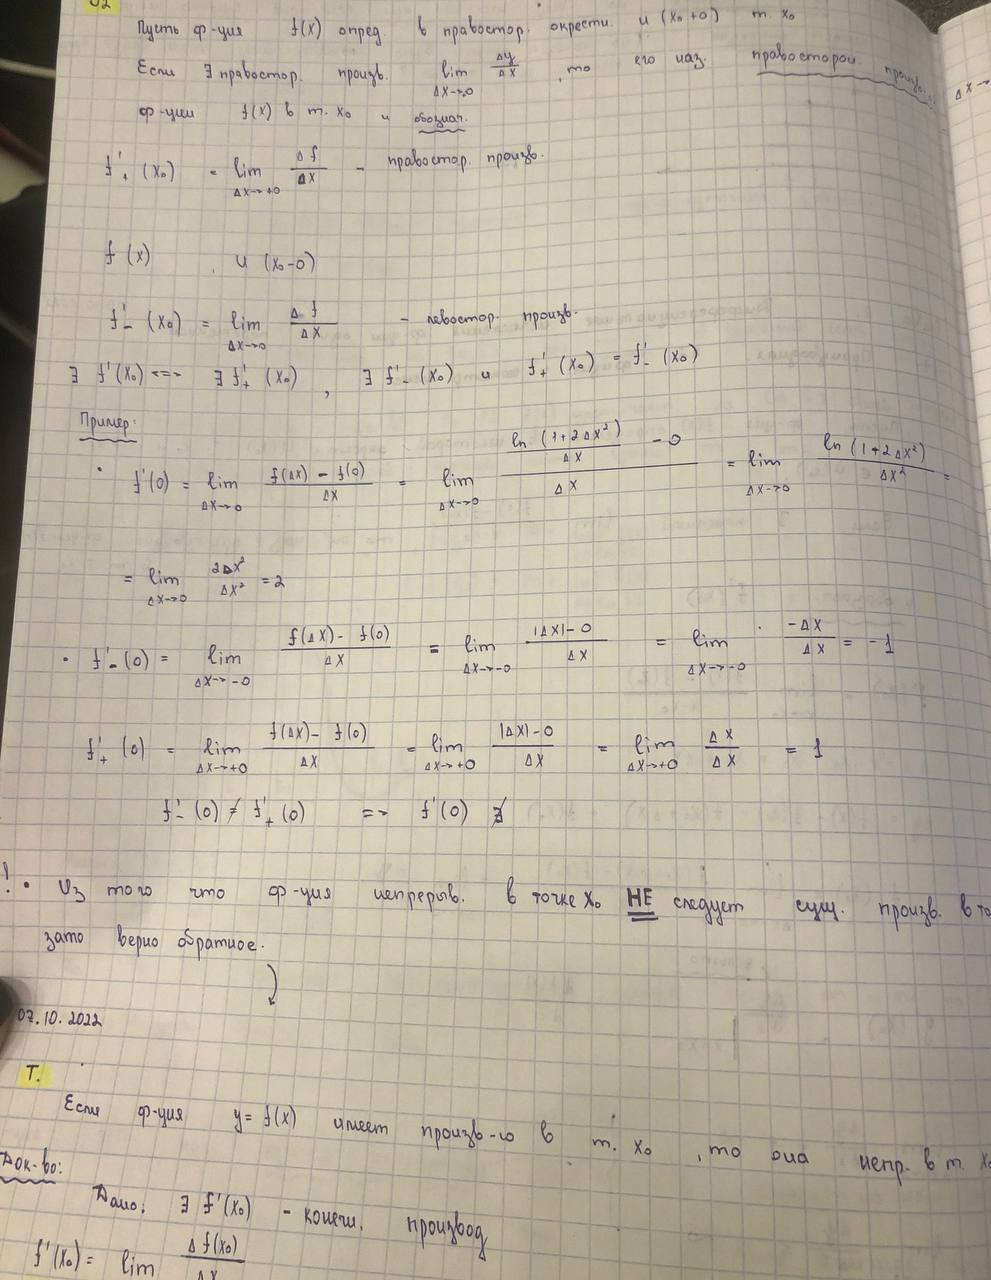 02
Пусть ф-ция f(x) опред. в правостор. окрестн. U (x₀+0) т. x₀
Если ∃ правостор. произв. lim Δx→0 Δy/Δx, то его наз. правосторон. произв.
ф-ции f(x) в т. x₀ и обознач.
f'₊ (x₀) = lim Δx→+0 Δf/Δx - правостор. произв.
f (x) , U (x₀-0)
f'₋ (x₀) = lim Δx→0 Δf/Δx - левостор. произв.
∃ f'(x₀) <=> ∃ f'₊ (x₀) , ∃ f'₋ (x₀) и f'₊ (x₀) = f'₋ (x₀)
Пример:
• f'(0) = lim Δx→0 (f(Δx) - f(0))/Δx = lim Δx→0 (ln (1+2Δx²)/Δx - 0)/Δx = lim Δx→0 ln (1+2Δx²)/Δx² =
= lim Δx→0 2Δx²/Δx² = 2
• f'₋(0) = lim Δx→-0 (f(Δx) - f(0))/Δx = lim Δx→-0 (|Δx| - 0)/Δx = lim Δx→-0 -Δx/Δx = -1
f'₊ (0) = lim Δx→+0 (f(Δx) - f(0))/Δx = lim Δx→+0 (|Δx| - 0)/Δx = lim Δx→+0 Δx/Δx = 1
f'₋(0) ≠ f'₊(0) => f'(0) ∄
! • Из того что ф-ция непрерыв. в точке x₀ НЕ следует сущ. произв. в то
зато верно обратное.
07.10.2022
Т.
Если ф-ция y = f(x) имеет произв-ю в т. x₀ , то она непр. в т. x₀
Док-во:
Дано: ∃ f'(x₀) - конечн. производ
f'(x₀) = lim Δf(x₀)/Δx
Δx→